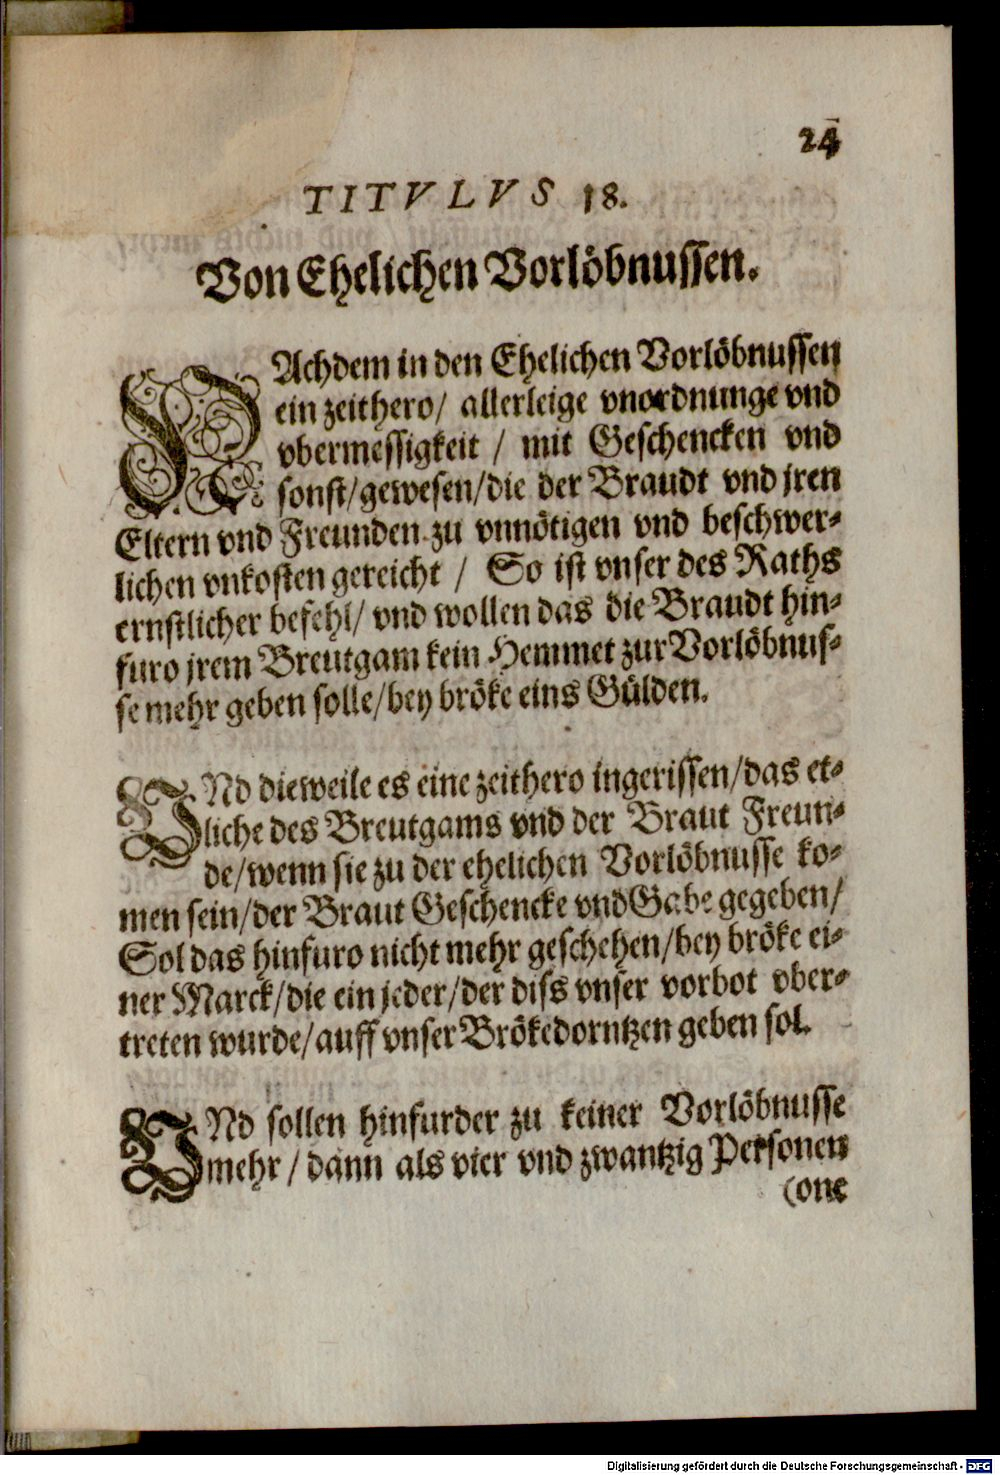 24
TITVLVS 18.
Von Ehelichen Vorlöbnussen.
NAchdem in den Ehelichen Vorlöbnussen
ein zeithero/ allerleige vnordnunge vnd
vbermessigkeit / mit Geschencken vnd
sonst/gewesen/die der Braudt vnd jren
Eltern vnd Freunden zu vnnötigen vnd beschwer-
lichen vnkosten gereicht / So ist vnser des Raths
ernstlicher befehl/ vnd wollen das die Braudt hin-
furo jrem Breutgam kein Hemmet zur Vorlöbnus-
se mehr geben solle/bey bröke eins Gülden.
VNd dieweile es eine zeithero ingerissen/das et-
liche des Breutgams vnd der Braut Freun-
de/wenn sie zu der ehelichen Vorlöbnusse ko-
men sein/der Braut Geschencke vnd Gabe gegeben/
Sol das hinfuro nicht mehr geschehen/bey bröke ei-
ner Marck/die ein jeder/der diss vnser vorbot vber-
treten wurde/auff vnser Brökedorntzen geben sol.
VNd sollen hinfurder zu keiner Vorlöbnusse
mehr / dann als vier vnd zwantzig Personen
(one
Digitalisierung gefördert durch die Deutsche Forschungsgemeinschaft - DFG